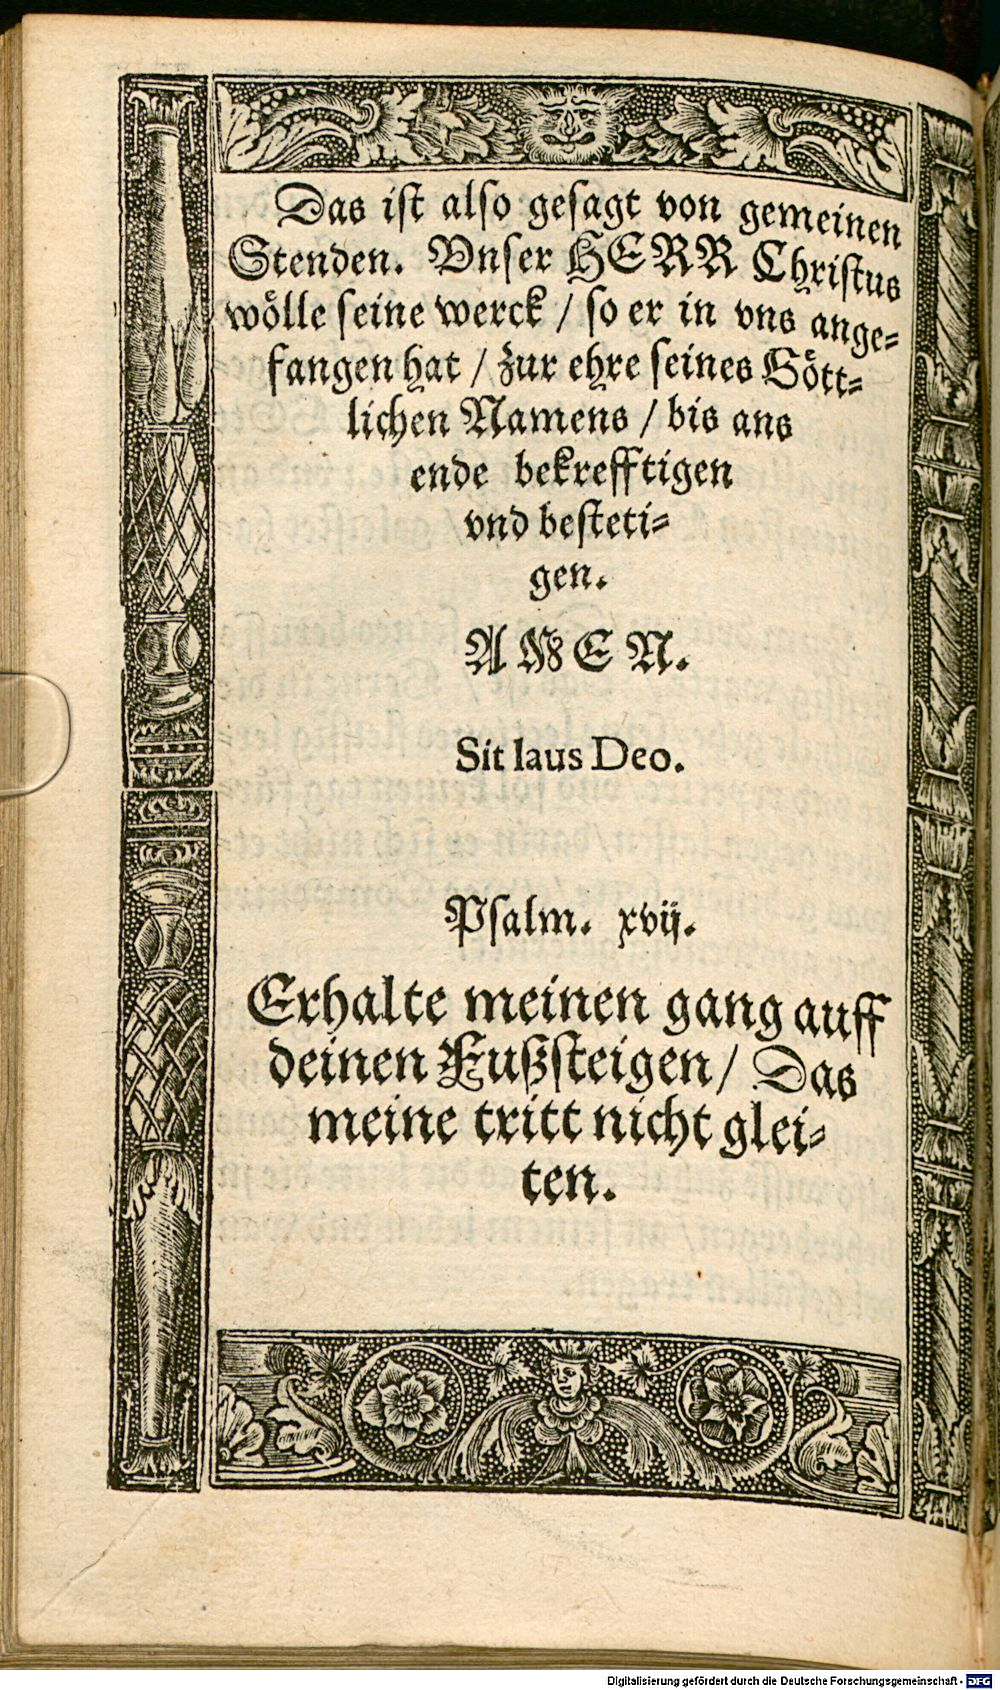 Das ist also gesagt von gemeinen
Stenden. Vnser HERR Christus
wölle seine werck / so er in vns ange-
fangen hat / zur ehre seines Gött-
lichen Namens / bis ans
ende bekrefftigen
vnd besteti-
gen.
AMEN.
Sit laus Deo.
Psalm. xvij.
Erhalte meinen gang auff
deinen Fußsteigen / Das
meine tritt nicht glei-
ten.
Digitalisierung gefördert durch die Deutsche Forschungsgemeinschaft - DFG